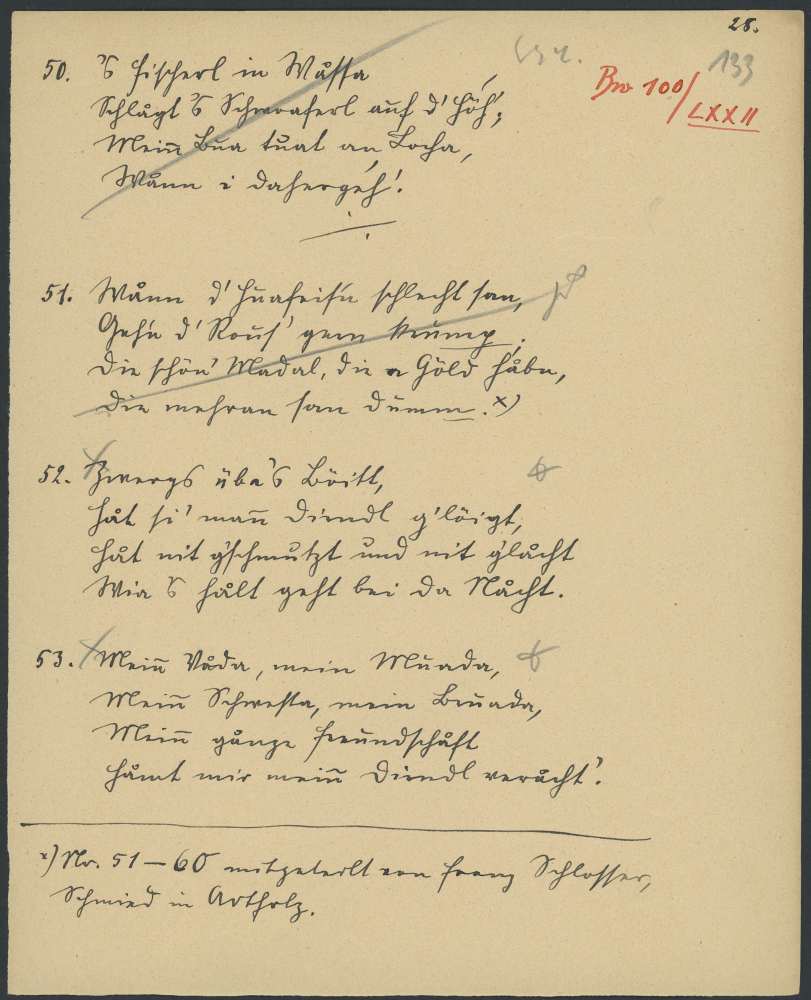 28.
133
Bw 100/LXXII
50. 's Fischerl in Wåssa
Schlågt 's Schwoaferl auf d' Höh';
Mein̄ Bua tuat an Locha,
Wånn i dahergéh'.
51. Wånn d' Huafeis'n schlecht san,
Gehn d' Rouß' gern krump;
Die schön' Madal, die a Göld håbn,
Die mehran san dumm. x)
52. Zwergs üba's Böitt,
Håt si' man̄ Diendl g'löigt,
Håt nit g'schmutzt und nit g'låcht
Wia 's hålt geht bei da Nåcht.
53. Mein̄ Våda, mein Muada,
Mein̄ Schwesta, mein Bruada,
Mein̄ gånze Freundschåft
Håmt mir mein̄ Diendl veråcht'.
x) Nr. 51 – 60 mitgeteilt von Franz Schlosser,
Schmied in Artholz.